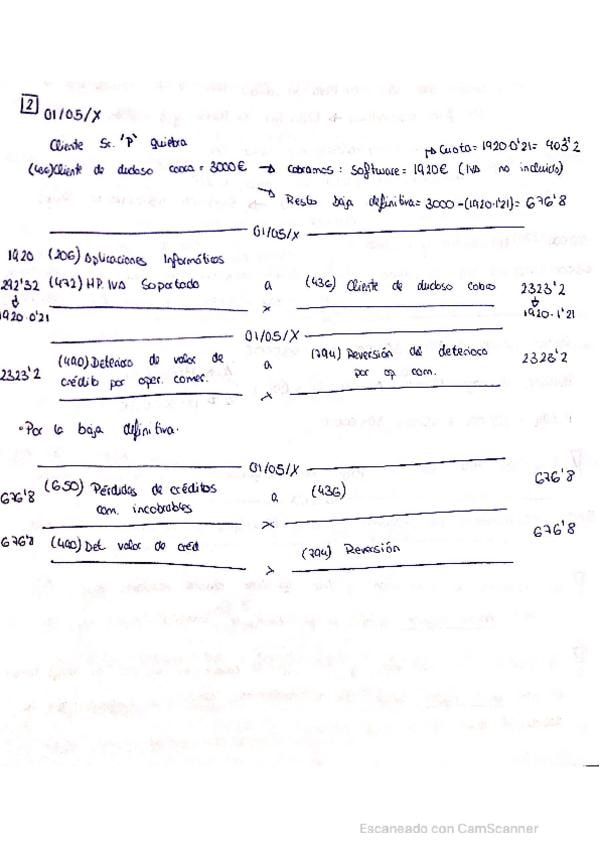 2 01/05/X
Cliente Sr. 'P' quiebra
↦ Cuota = 1920·0'21 = 403'2
(436) Cliente de dudoso cobro = 3000€ → cobramos: software = 1920€ (IVA no incluido)
→ Resto baja definitiva = 3000 - (1920·1'21) = 676'8
01/05/X
1920 (206) Aplicaciones Informáticas
292'32 (472) HP. IVA Soportado a (436) Cliente de dudoso cobro 2323'2
1920·0'21 x 1920·1'21
01/05/X
2323'2 (490) Deterioro de valor de a (794) Reversión del deterioro 2323'2
crédito por oper. comer. por op com.
x
· Por la baja definitiva.
01/05/X
676'8 (650) Pérdidas de créditos a (436) 676'8
com. incobrables
x
676'8 (490) Det valor de créd (794) Reversión 676'8
x
Escaneado con CamScanner